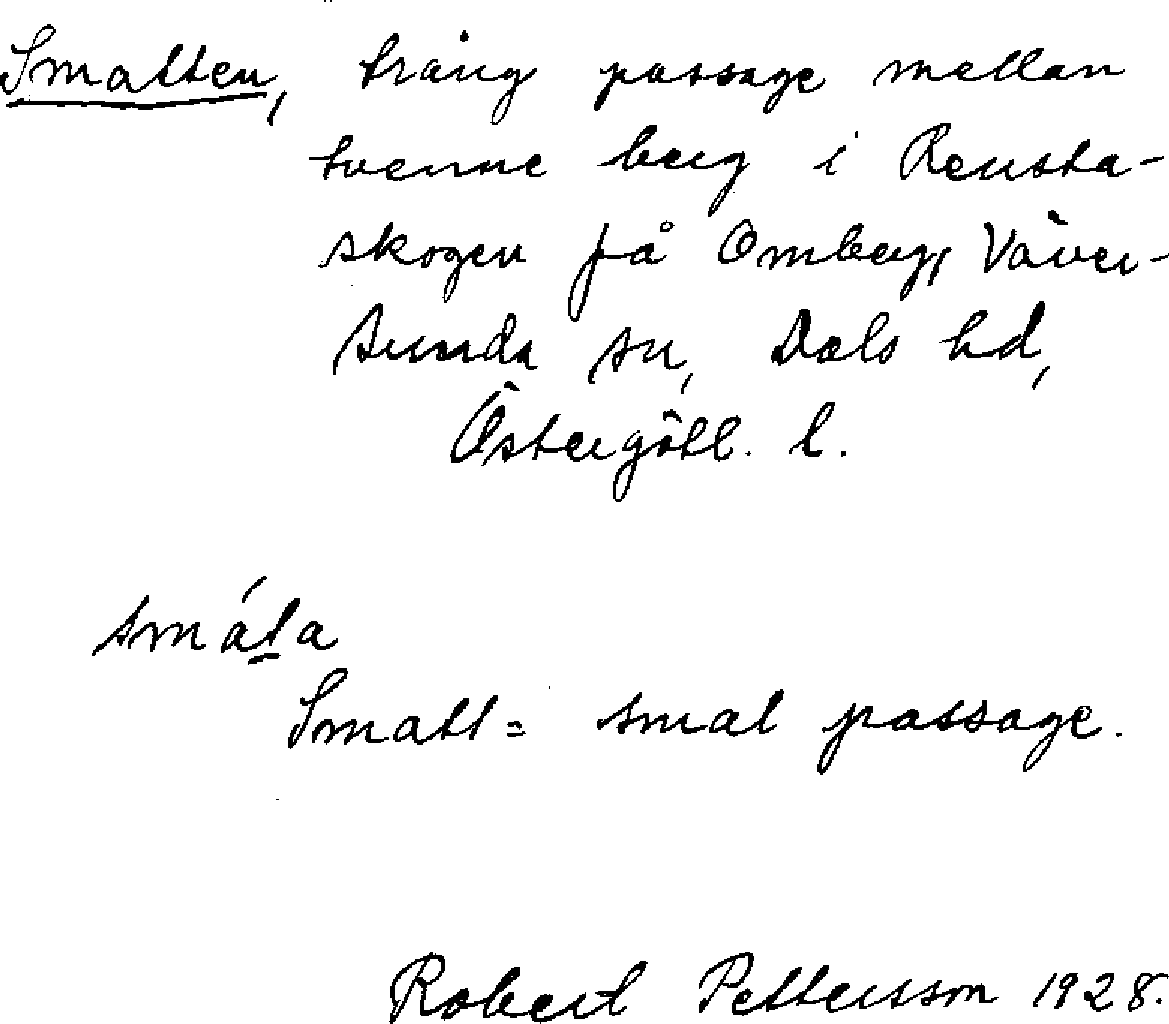 Smatten, trång passage mellan
tvenne berg i Rensta-
skogen på Omberg, Väver-
sunda sn, Dals hd,
Östergötl. l.
smáta
Smatt = smal passage.
Robert Pettersson 1928.